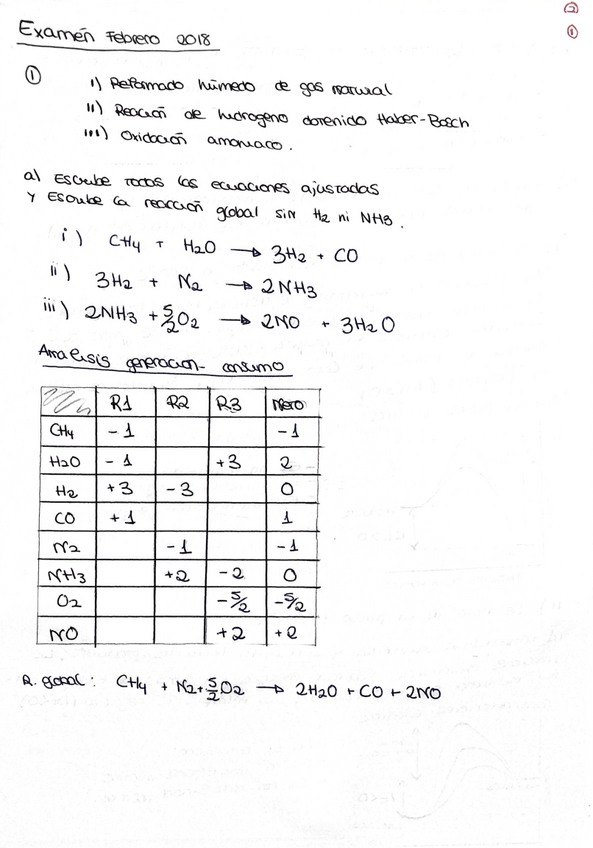 2
1
Examen Febrero 2018
1
i) Reformado húmedo de gas natural
ii) Reacción de hidrogeno obtenido Haber-Bosch
iii) Oxidación amoniaco.
a) Escribe todas las ecuaciones ajustadas
y Escribe la reacción global sin H2 ni NH3.
i) CH4 + H2O → 3H2 + CO
ii) 3H2 + N2 → 2NH3
iii) 2NH3 + 5/2 O2 → 2NO + 3H2O
Analisis generacion- consumo
R1 R2 R3 Neto
CH4 -1 -1
H2O -1 +3 2
H2 +3 -3 0
CO +1 1
N2 -1 -1
NH3 +2 -2 0
O2 -5/2 -5/2
NO +2 +2
R. global: CH4 + N2 + 5/2 O2 → 2H2O + CO + 2NO